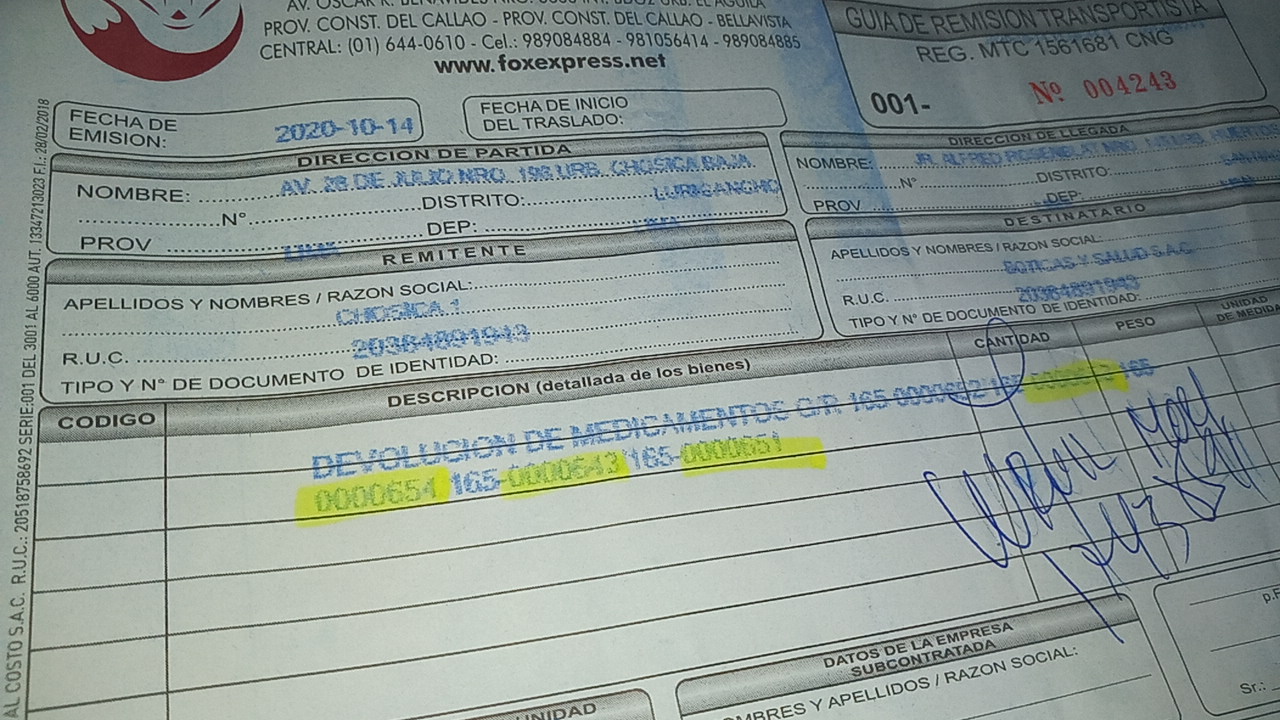 PROV. CONST. DEL CALLAO - PROV. CONST. DEL CALLAO - BELLAVISTA
CENTRAL: (01) 644-0610 - Cel.: 989084884 - 981056414 - 989084885
www.foxexpress.net
GUIA DE REMISION TRANSPORTISTA
REG. MTC 1561681 CNG
001- Nº 004243
FECHA DE EMISION: 2020-10-14
FECHA DE INICIO DEL TRASLADO:
DIRECCION DE PARTIDA
NOMBRE: AV. 28 DE JULIO NRO. 198 URB. CHOSICA BAJA
N° DISTRITO: LURIGANCHO
PROV DEP:
DIRECCION DE LLEGADA
NOMBRE: JR. ALFRED ROSENBLAT NRO.
N° DISTRITO:
PROV DEP:
REMITENTE
APELLIDOS Y NOMBRES / RAZON SOCIAL:
CHOSICA 1
R.U.C. 20384891943
TIPO Y N° DE DOCUMENTO DE IDENTIDAD:
DESTINATARIO
APELLIDOS Y NOMBRES / RAZON SOCIAL:
BOTICAS Y SALUD S.A.C.
R.U.C. 20384891943
TIPO Y N° DE DOCUMENTO DE IDENTIDAD:
CODIGO DESCRIPCION (detallada de los bienes) CANTIDAD PESO UNIDAD DE MEDIDA
DEVOLUCION DE MEDICAMENTOS G/R 165-0000652 165- 165
0000654 165-0000643 165-0000651
DATOS DE LA EMPRESA SUBCONTRATADA
NOMBRES Y APELLIDOS / RAZON SOCIAL:
UNIDAD
Sr.:
AL COSTO S.A.C. R.U.C.: 20518758692 SERIE:001 DEL 3001 AL 6000 AUT. 13347213023 F.I.: 28/02/2018